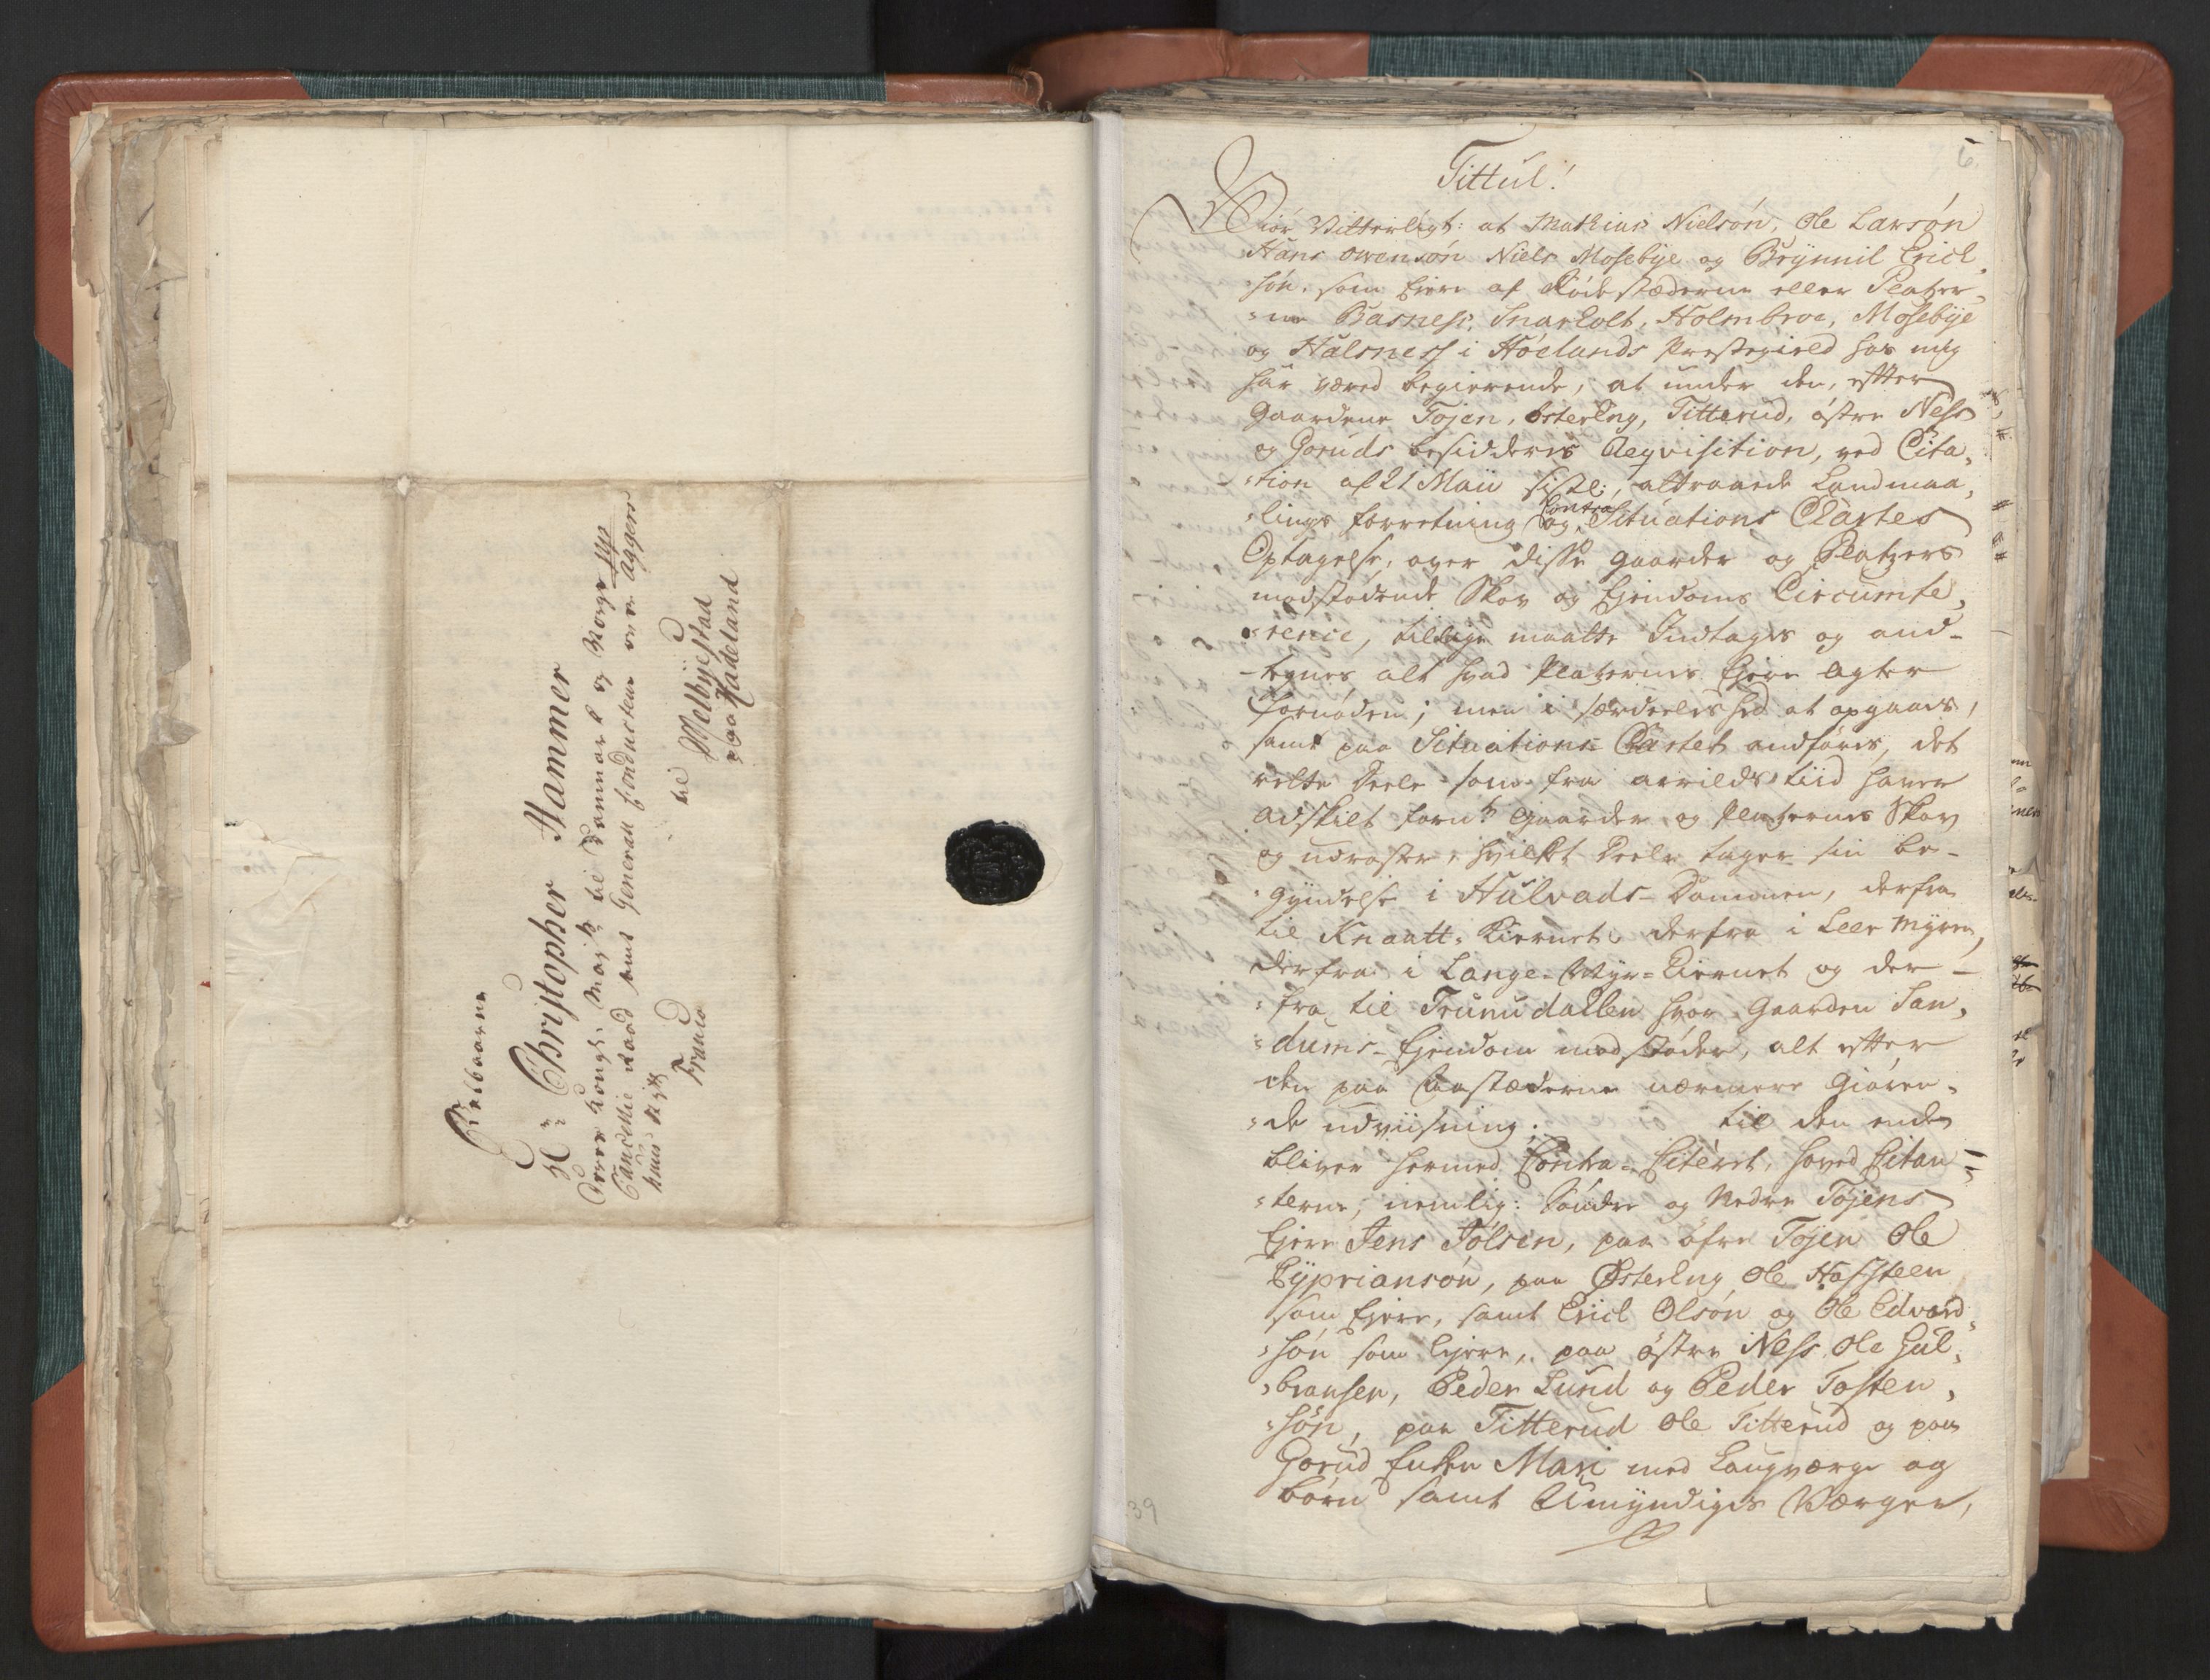 Velbaarne
H: Christopher Hammer
Deres Kongl: Mayts til Danmark og Norge &c
Cancellie Raad samt General Conducteur over Aggers-
huus Stift
Franco
til
Melbyestad
paa Hadeland
6.
Tittul!
Giør Vitterligt: at Mathias Nielsøn, Ole Larsøn
Hans Svensøn Niels Mosebye og Brynnil Erick-
søn, som Eiere af Ødestæderne eller Platzer-
=ne Basness, Snarholt, Holmbroe, Mosebye
og Halsness i Høelands Præstegield hos mig
har været begierende, at under den, efter
Gaardene Tøjen, Østereng, Titterud, østre Ness
og Goruds besidderes Reqvisition, ved Cita,
=tion af 21 Maii sistl:, attraaede Landmaa,
=lings forretning og Contra Situations Cartes
Optagelse, over disse Gaarder og Platzers
modstødende Skov og Ejendoms Circumfe,
=rence, tillige maatte Indtages og and-
-tegnes alt hvad Platzernes Ejere agter
fornøden; men i særdeeleshed at opgaaes,
samt paa Situations-Cartet andføres, det
rette Deele som fra arrilds tiid haver
adskilt fornte Gaarder og Platzernes Skov
og udraster, hvilket Deele tager sin be-
=gyndelse i Hulvads-Dammen, derfra
til Knaatt-Kiernet derfra i Leer Myren,
derfra i Lange-Myr-Kiernet og der-
=fra til Trunudallen hvor Gaarden San,
=dums-Ejendom modstøder, alt efter
den paa Aastæderne nærmere Giøren,
=de udviisning: til den ende
bliver hermed Contra-Citeret, hoved Citan-
=terne, nemlig: Søndre og Nedre Tøjens
Ejere Jens Jølsen, paa øfre Tøjen Ole
Cypriansøn, paa Østereng Ole Hafsteen
som Ejere, samt Erick Olsøn og Ole Edvard,
=søn som Ejere, paa østre Ness Ole Gul,
=bransen, Peder Lund og Peder Tosten,
=søn, paa Titterud Ole Titterud og paa
Gorud Enken Mari med Laugværge og
børn samt Umyndiges Værger,
39